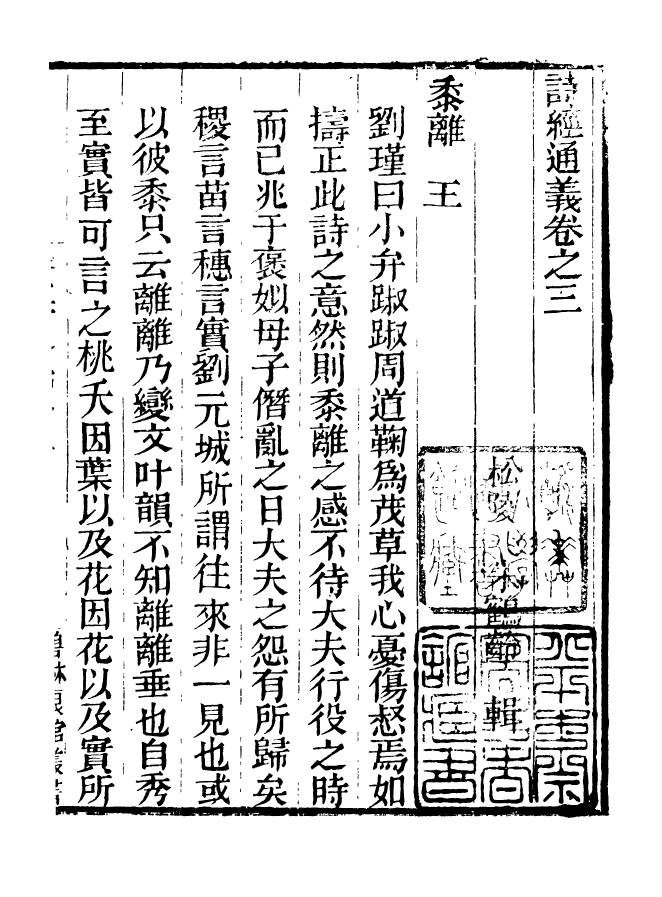 詩經通義卷之三
松陵朱鶴齡輯
黍離　王
劉瑾曰小弁踧踧周道鞠爲茂草我心憂傷惄焉如
擣正此詩之意然則黍離之感不待大夫行役之時
而已兆于褒姒母子僭亂之日大夫之怨有所歸矣
稷言苗言穗言實劉元城所謂往來非一見也或
以彼黍只云離離乃變文叶韻不知離離垂也自秀
至實皆可言之桃夭因葉以及花因花以及實所
碧琳琅館叢書